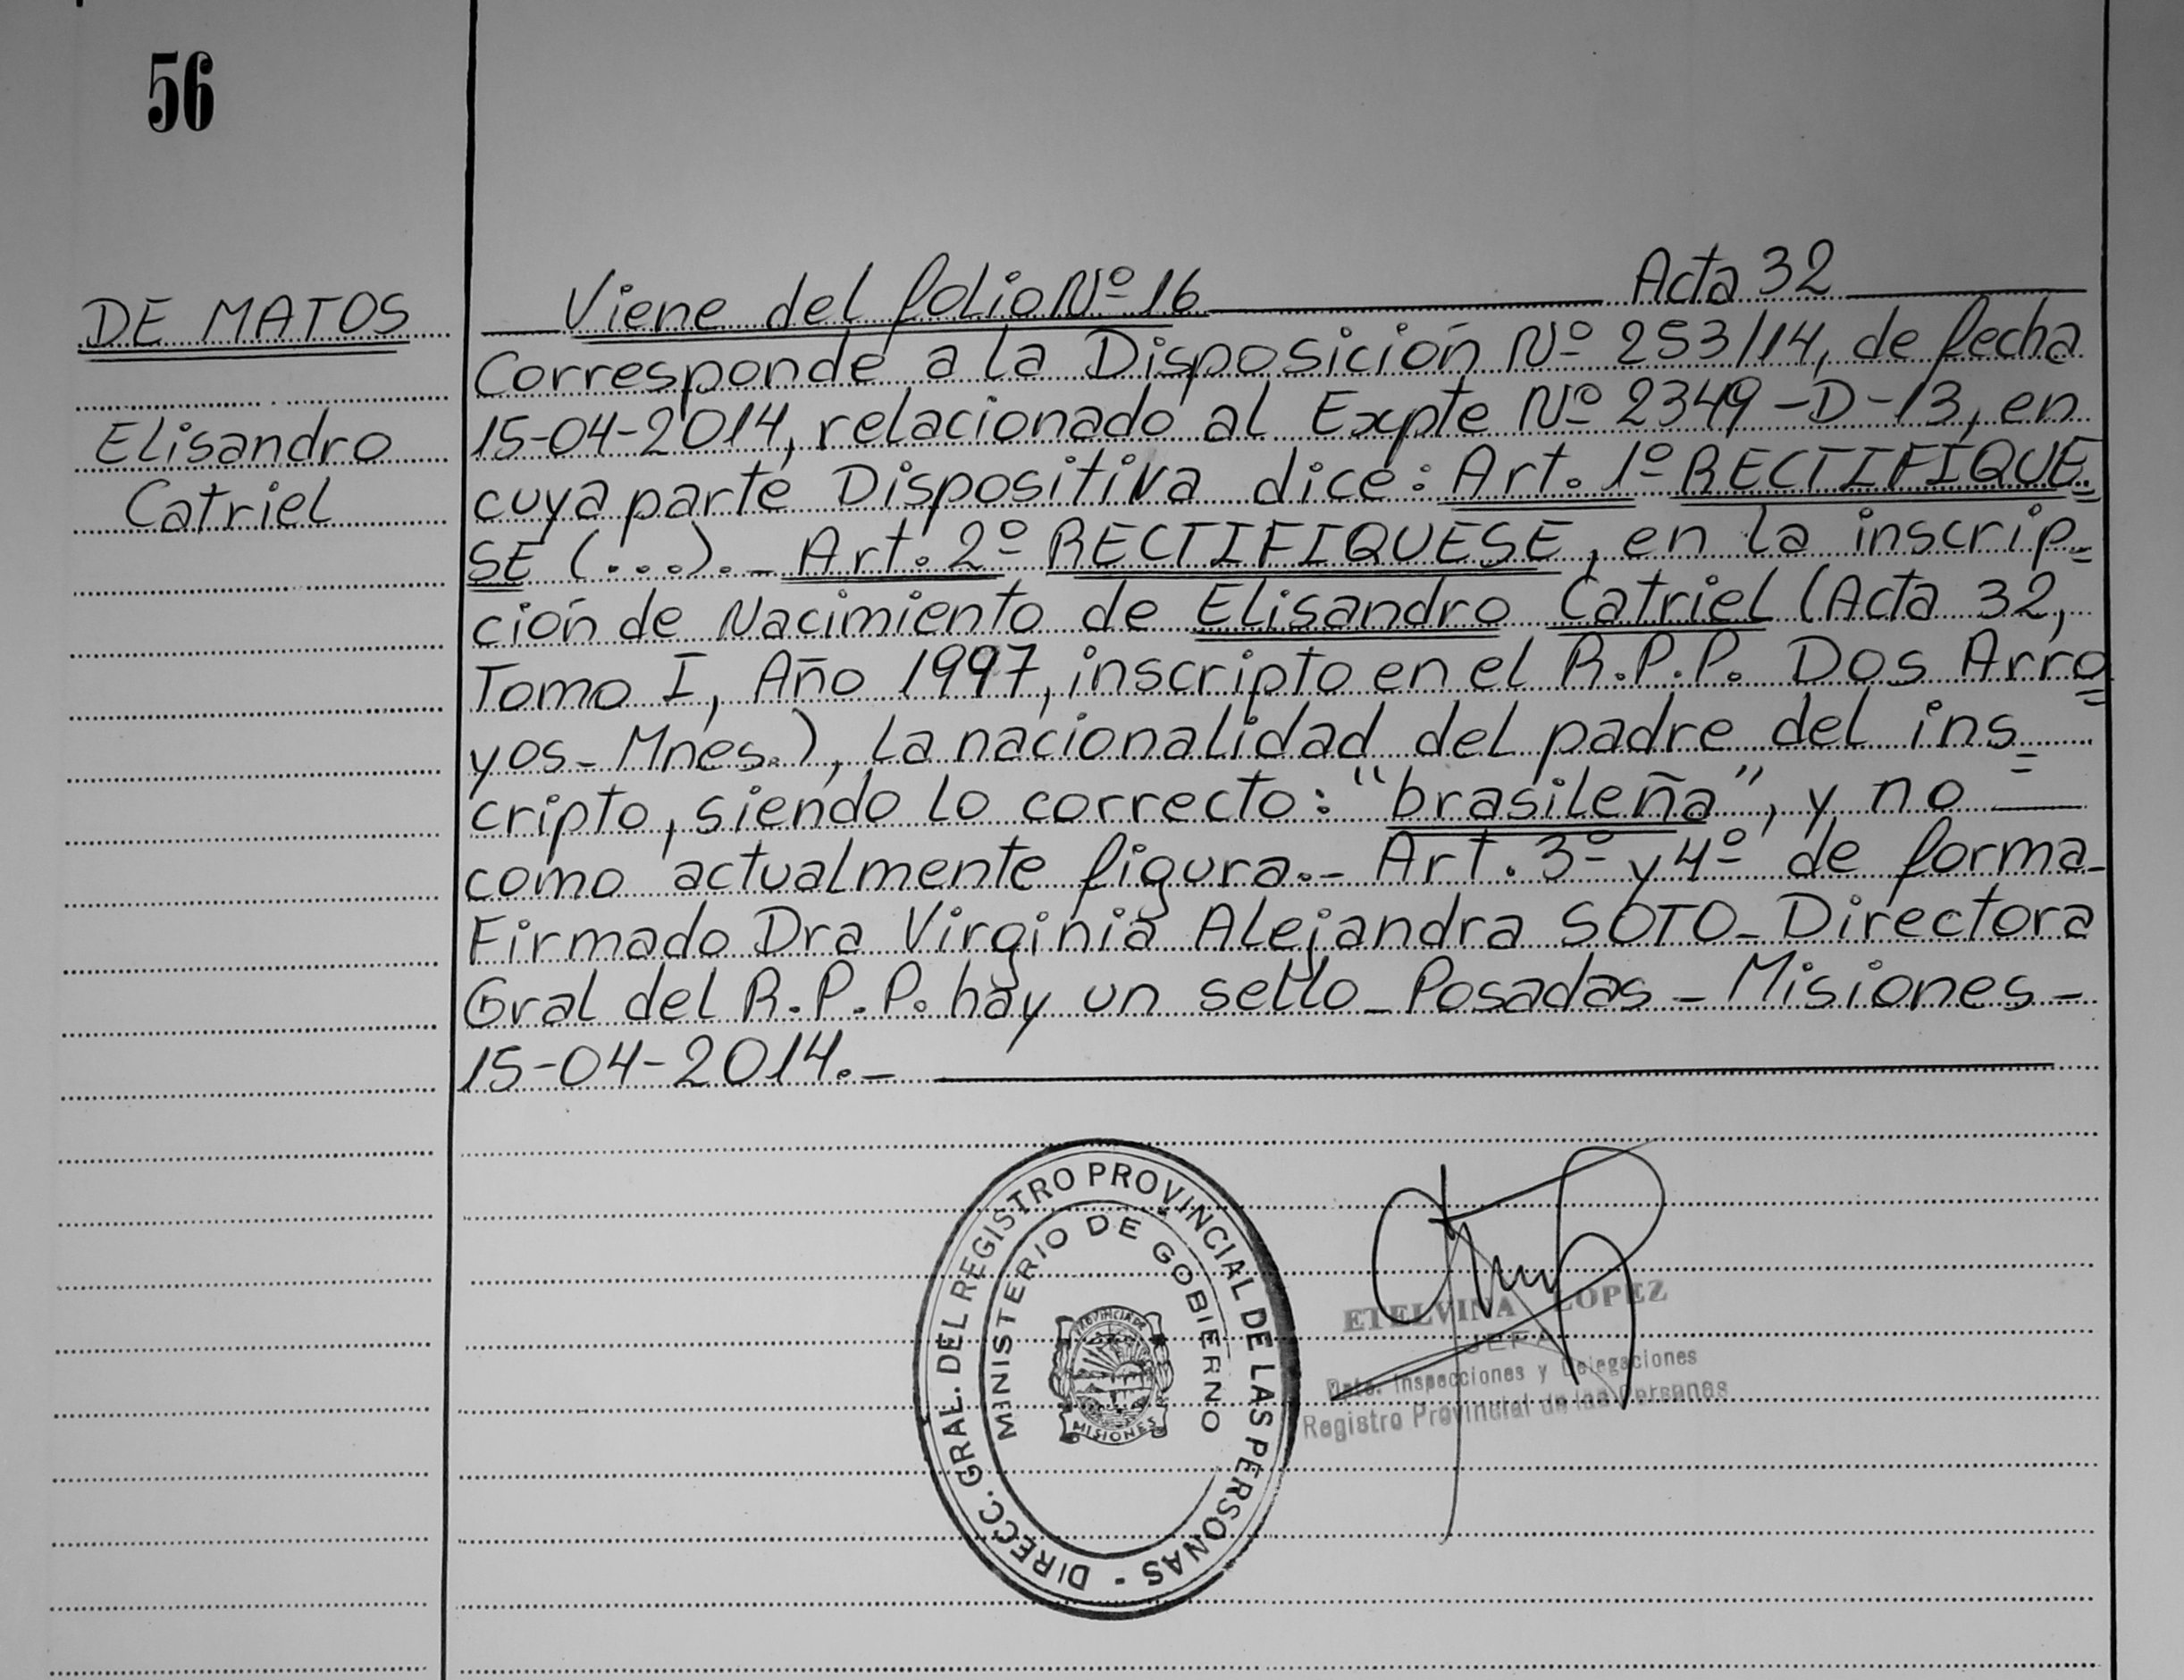 56
DE MATOS
Elisandro
Catriel
Viene del folio Nº 16 Acta 32
Corresponde a la Disposición Nº 253/14, de fecha
15-04-2014, relacionado al Expte Nº 2349-D-13, en
cuya parte Dispositiva dice: Art. 1º RECTIFIQUE=
SE (...)._ Art. 2º RECTIFIQUESE, en la inscrip=
ción de Nacimiento de Elisandro Catriel (Acta 32,
Tomo I, Año 1997, inscripto en el R.P.P. Dos Arro=
yos-Mnes.), la nacionalidad del padre del ins=
cripto, siendo lo correcto: "brasileña", y no
como actualmente figura._ Art. 3º y 4º de forma_
Firmado Dra Virginia Alejandra SOTO_ Directora
Gral del R.P.P. hay un sello_ Posadas_ Misiones_
15-04-2014._
DIRECC. GRAL. DEL REGISTRO PROVINCIAL DE LAS PERSONAS -
MINISTERIO DE GOBIERNO
PROVINCIA DE
MISIONES
ETELVINA LOPEZ
JEFA
Dpto. Inspecciones y Delegaciones
Registro Provincial de las Personas